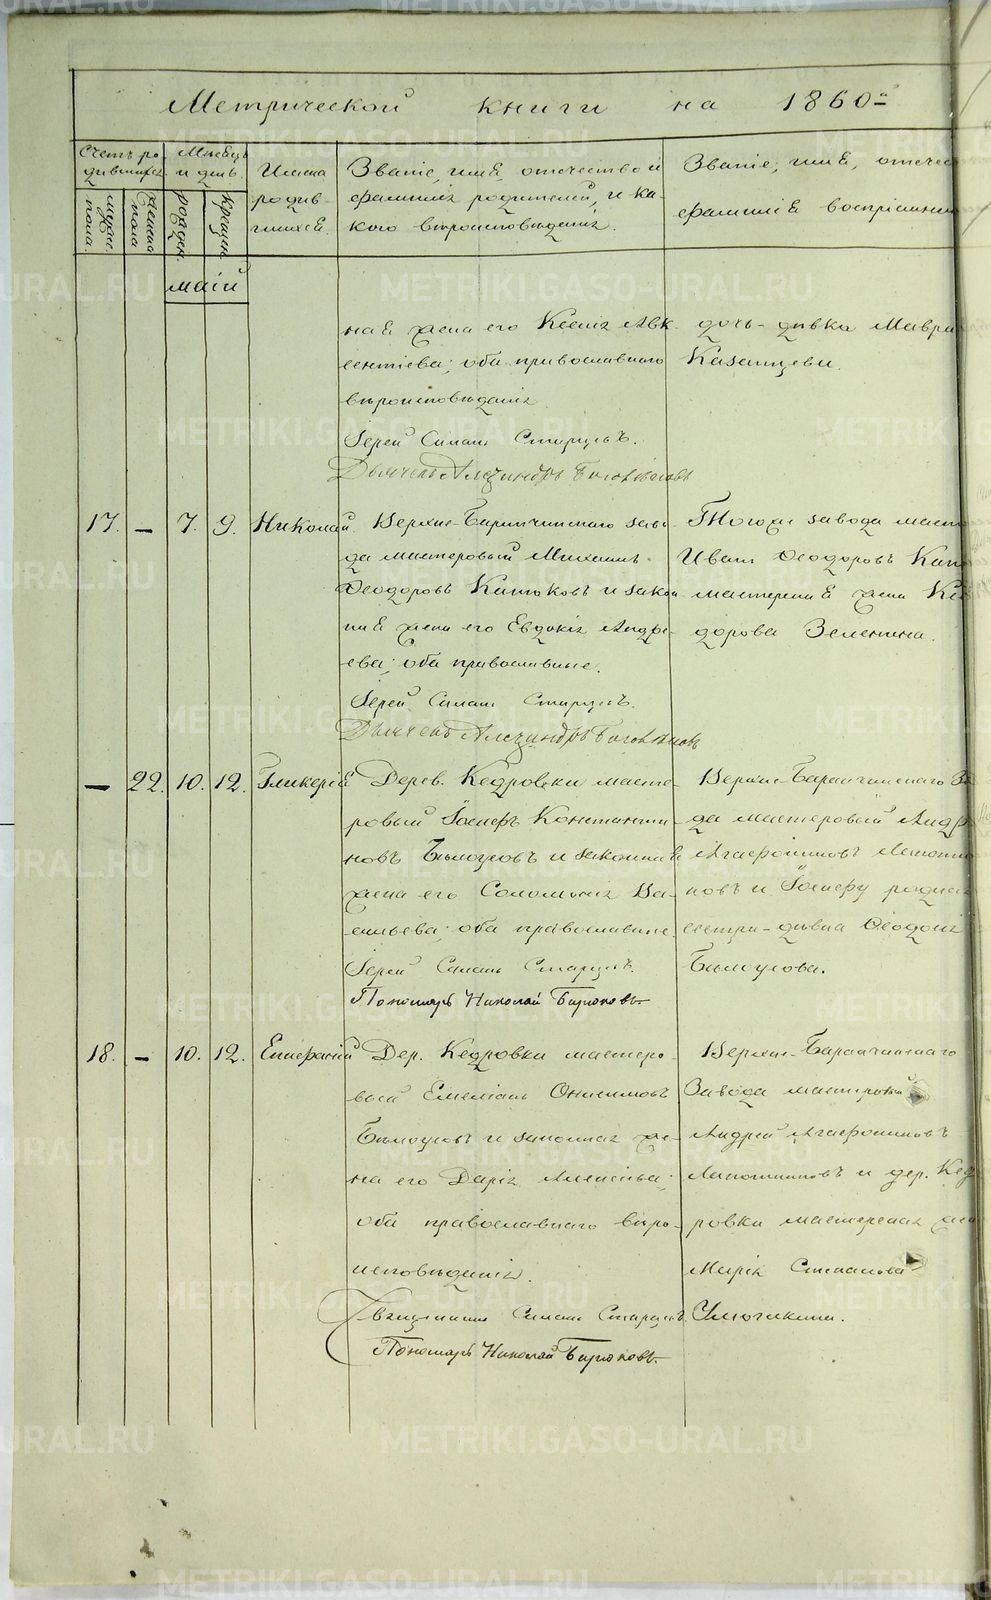 Метрической книги на 1860й
Счетъ родившихся
Мѣсяцъ и день.
Имена родившихся.
Званіе, имя, отечество и фамилія родителей, и какого вѣроисповѣданія.
Званіе, имя, отечес
фамилія воспріемник
мужес. пола.
женска пола
рожден.
крещен.
Маій
ная жена его Ксенія Авк
сентіева; оба православнаго
вѣроисповѣданія.
Іерей Симеонъ Старцевъ.
дочь-дѣвка Мавра
Казанцева.
17. — 7. 9. Николай
Верхне-Баранчинскаго заво-
да мастеровый Михаилъ
Ѳеодоровъ Катюковъ и закон
ная жена его Евдокія Андре-
ева; оба православные.
Іерей Симеонъ Старцевъ.
Тогоже завода масте
Иванъ Ѳеодоровъ Кат
мастерская жена
дорова Зеленина.
— 22. 10. 12. Гликерія
Дерев. Кедровки масте-
ровый Іосифъ Константи-
новъ Бѣлоусовъ и законная
жена его Соломонія Ва-
сильева; оба православные.
Іерей Симеонъ Старцевъ.
Пономарь Николай Бирюковъ.
Верхне-Баранчинскаго За
да мастеровый Андр
Агафониковъ
ковъ и Іосифу родная
сестра-дѣвка Ѳеодосія
Бѣлоусова.
18. — 10. 12. Епифаній
Дер. Кедровки мастеро-
вый Емеліанъ Онисимовъ
Бѣлоусовъ и законная же-
на его Дарія Алексѣева;
оба православнаго вѣро-
исповѣданія.
Священникъ Симеонъ Старцевъ.
Пономарь Николай Бирюковъ.
Верхне-Баранчинскаго
Завода мастеровый
Андрей Агафониковъ
и дер. Кед
ровки мастерская жена
Марія Степанова
METRIKI.GASO-URAL.RU